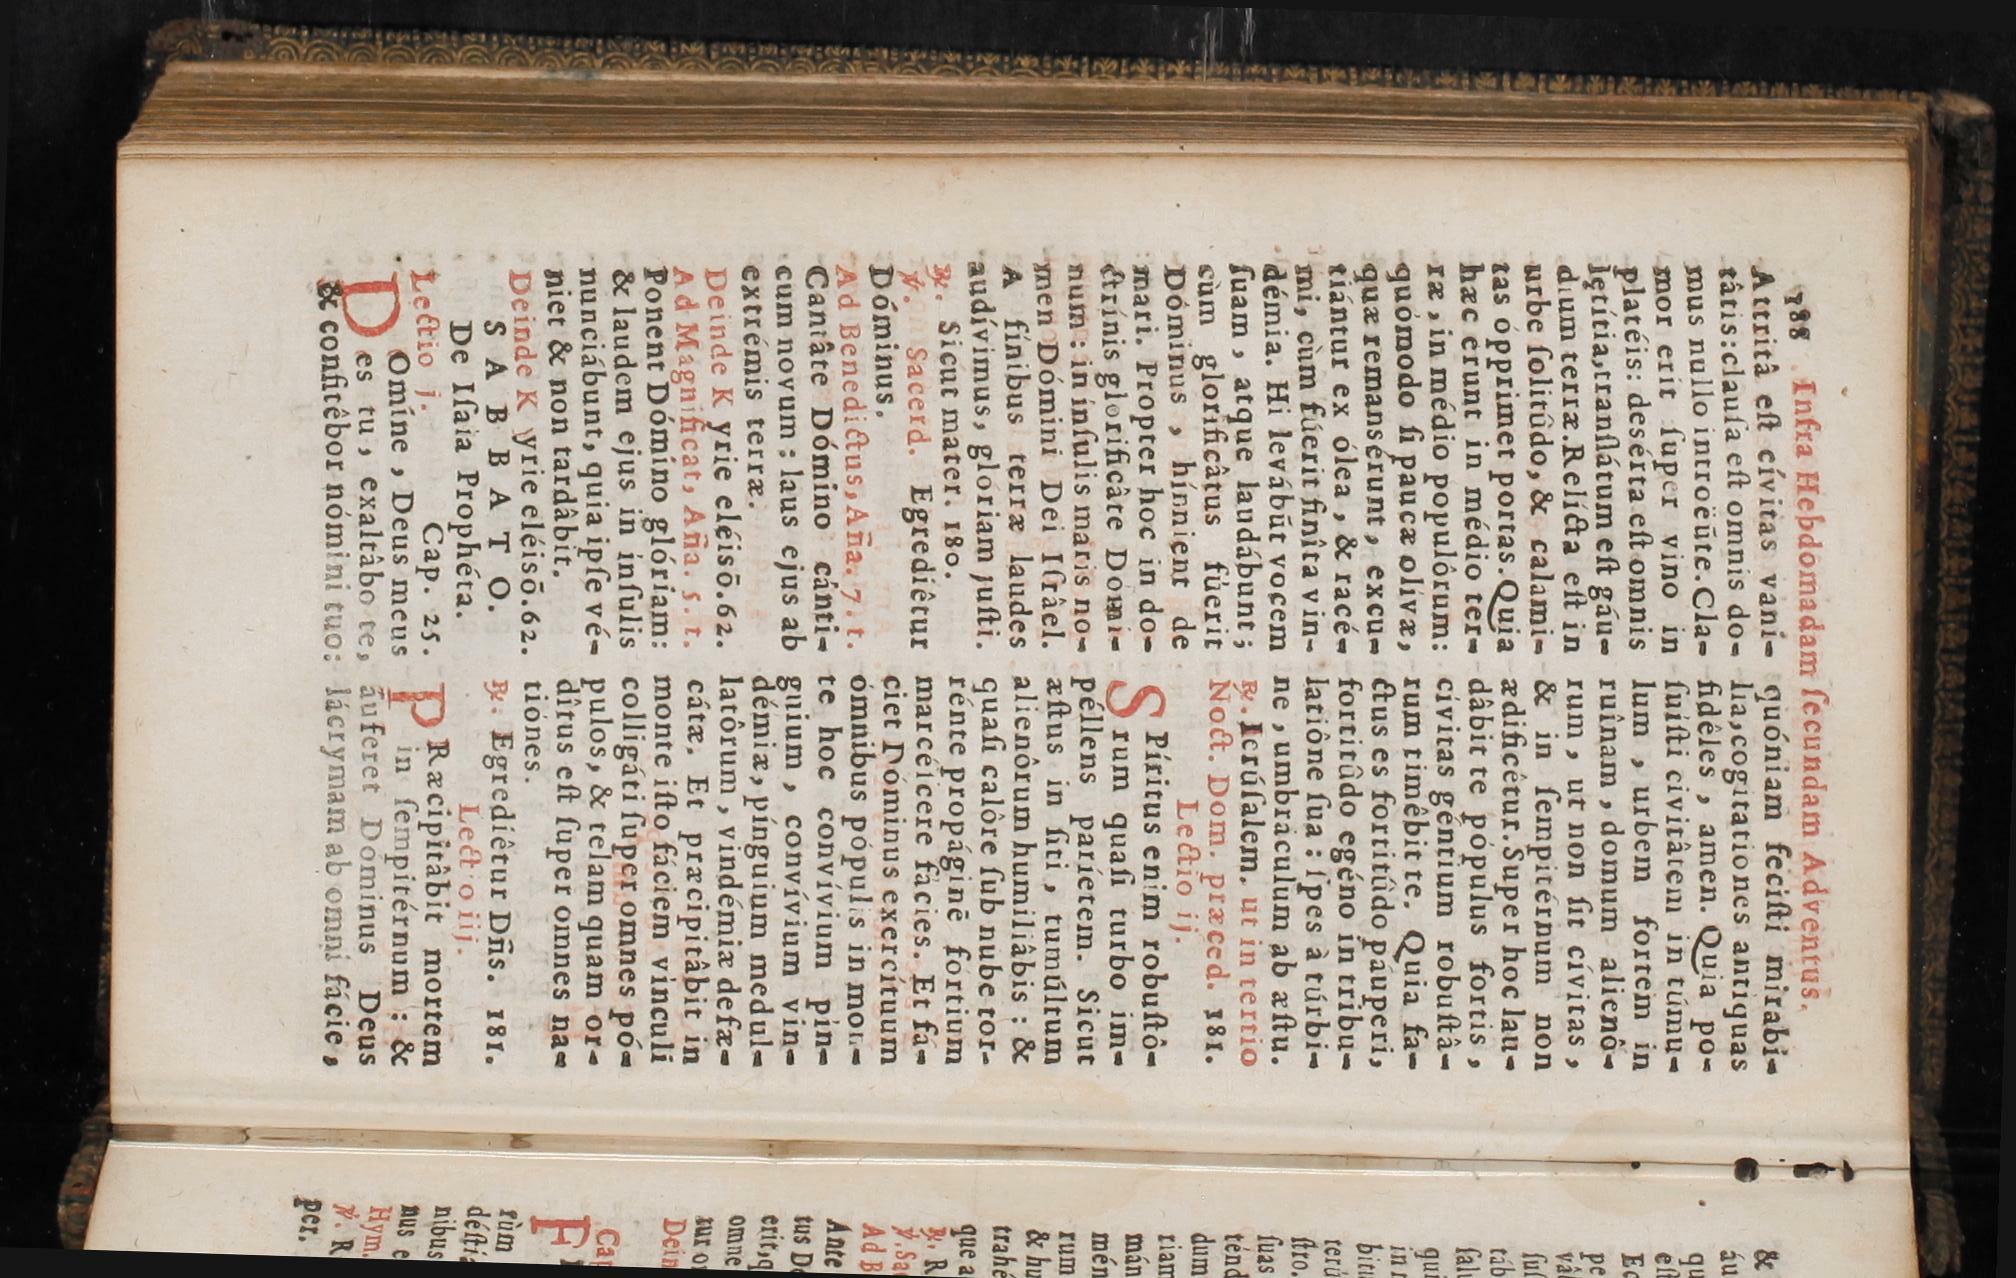 188 Infra Hebdomadam ſecundam Adventus.
Attritâ eſt cívitas vani-
tâtis: clauſa eſt omnis do-
mus nullo introëūte. Cla-
mor erit ſuper vino in
platéis: desérta eſt omnis
lętítia, tranſlátum eſt gáu-
dium terræ. Relícta eſt in
urbe ſolitûdo, & calami-
tas ópprimet portas. Quia
hæc erunt in médio ter-
ræ, in médio populôrum:
quómodo ſi paucæ olívæ,
quæ remansérunt, excu-
tiántur ex ólea, & racé-
mi, cùm fúerit finîta vin-
démia. Hi levábūt vocem
ſuam, atque laudábunt;
cùm glorificâtus fúerit
Dóminus, hínnient de
mari. Propter hoc in do-
ctrínis glorificâte Domi-
num: in ínſulis maris no-
men Dómini Dei Iſrâel.
A fínibus terræ laudes
audívimus, glóriam juſti.
℟. Sicut mater. 180.
℣. Sacerd. Egrediêtur
Dóminus.
Ad Benedictus, Aña. 7. t.
Cantâte Dómino cánti-
cum novum: laus ejus ab
extrémis terræ.
Deinde Kyrie eléisō. 62.
Ad Magnificat, Aña. 5. t.
Ponent Dómino glóriam:
& laudem ejus in inſulis
nunciábunt, quia ipſe vé-
niet & non tardâbit.
Deinde Kyrie eléisō. 62.
SABBATO.
De Iſaia Prophéta.
Lectio j. Cap. 25.
DOmíne, Deus meus
es tu, exaltâbo te,
& confitêbor nómini tuo:
quóniam feciſti mirabi-
lia, cogitationes antiquas
fidêles, amen. Quia po-
ſuíſti civitâtem in túmu-
lum, urbem fortem in
ruînam, domum alienô-
rum, ut non ſit cívitas,
& in ſempitérnum non
ædificêtur. Super hoc lau-
dâbit te pópulus fortis,
cívitas géntium robuſtâ-
rum timêbit te. Quia fa-
ctus es fortitûdo páuperi,
fortitûdo egéno in tribu-
latiône ſua: ſpes à túrbi-
ne, umbráculum ab æſtu.
℟. Ierúſalem. ut in tertio
Noct. Dom. præced. 181.
Lectio ij.
SPíritus enim robuſtô-
rum quaſi turbo im-
péllens paríetem. Sicut
æſtus in ſiti, tumúltum
alienôrum humiliâbis: &
quaſi calôre ſub nube tor-
rénte propáginē fórtium
marcéſcere fácies. Et fá-
ciet Dóminus exercítuum
ómnibus pópulis in mon-
te hoc convívium pín-
guium, convívium vin-
démiæ, pínguium medul-
latôrum, vindémiæ defæ-
cátæ. Et præcipitâbit in
monte iſto fáciem vínculi
colligáti ſuper omnes pó-
pulos, & telam quam or-
dîtus eſt ſuper omnes na-
tiónes.
℟. Egrediêtur Dñs. 181.
Lectio iij.
PRæcipitâbit mortem
in ſempitérnum: &
áuferet Dóminus Deus
lácrymam ab omni fácie,
&
áu
qu
eſt
Ec
pe
ſuſ
táb
ſalu
qui
in
terú
ſtro.
ſuas
ténd
dum
riam
mán
mén
rum
& hu
trahé
que a
℟. R
℣. Sac
Ad B
Ante
tus Do
erit, q
omne
tur o
Dein
Cap
F
rùm
déſti
nibus
nus e
Hym.
℣. R
per.